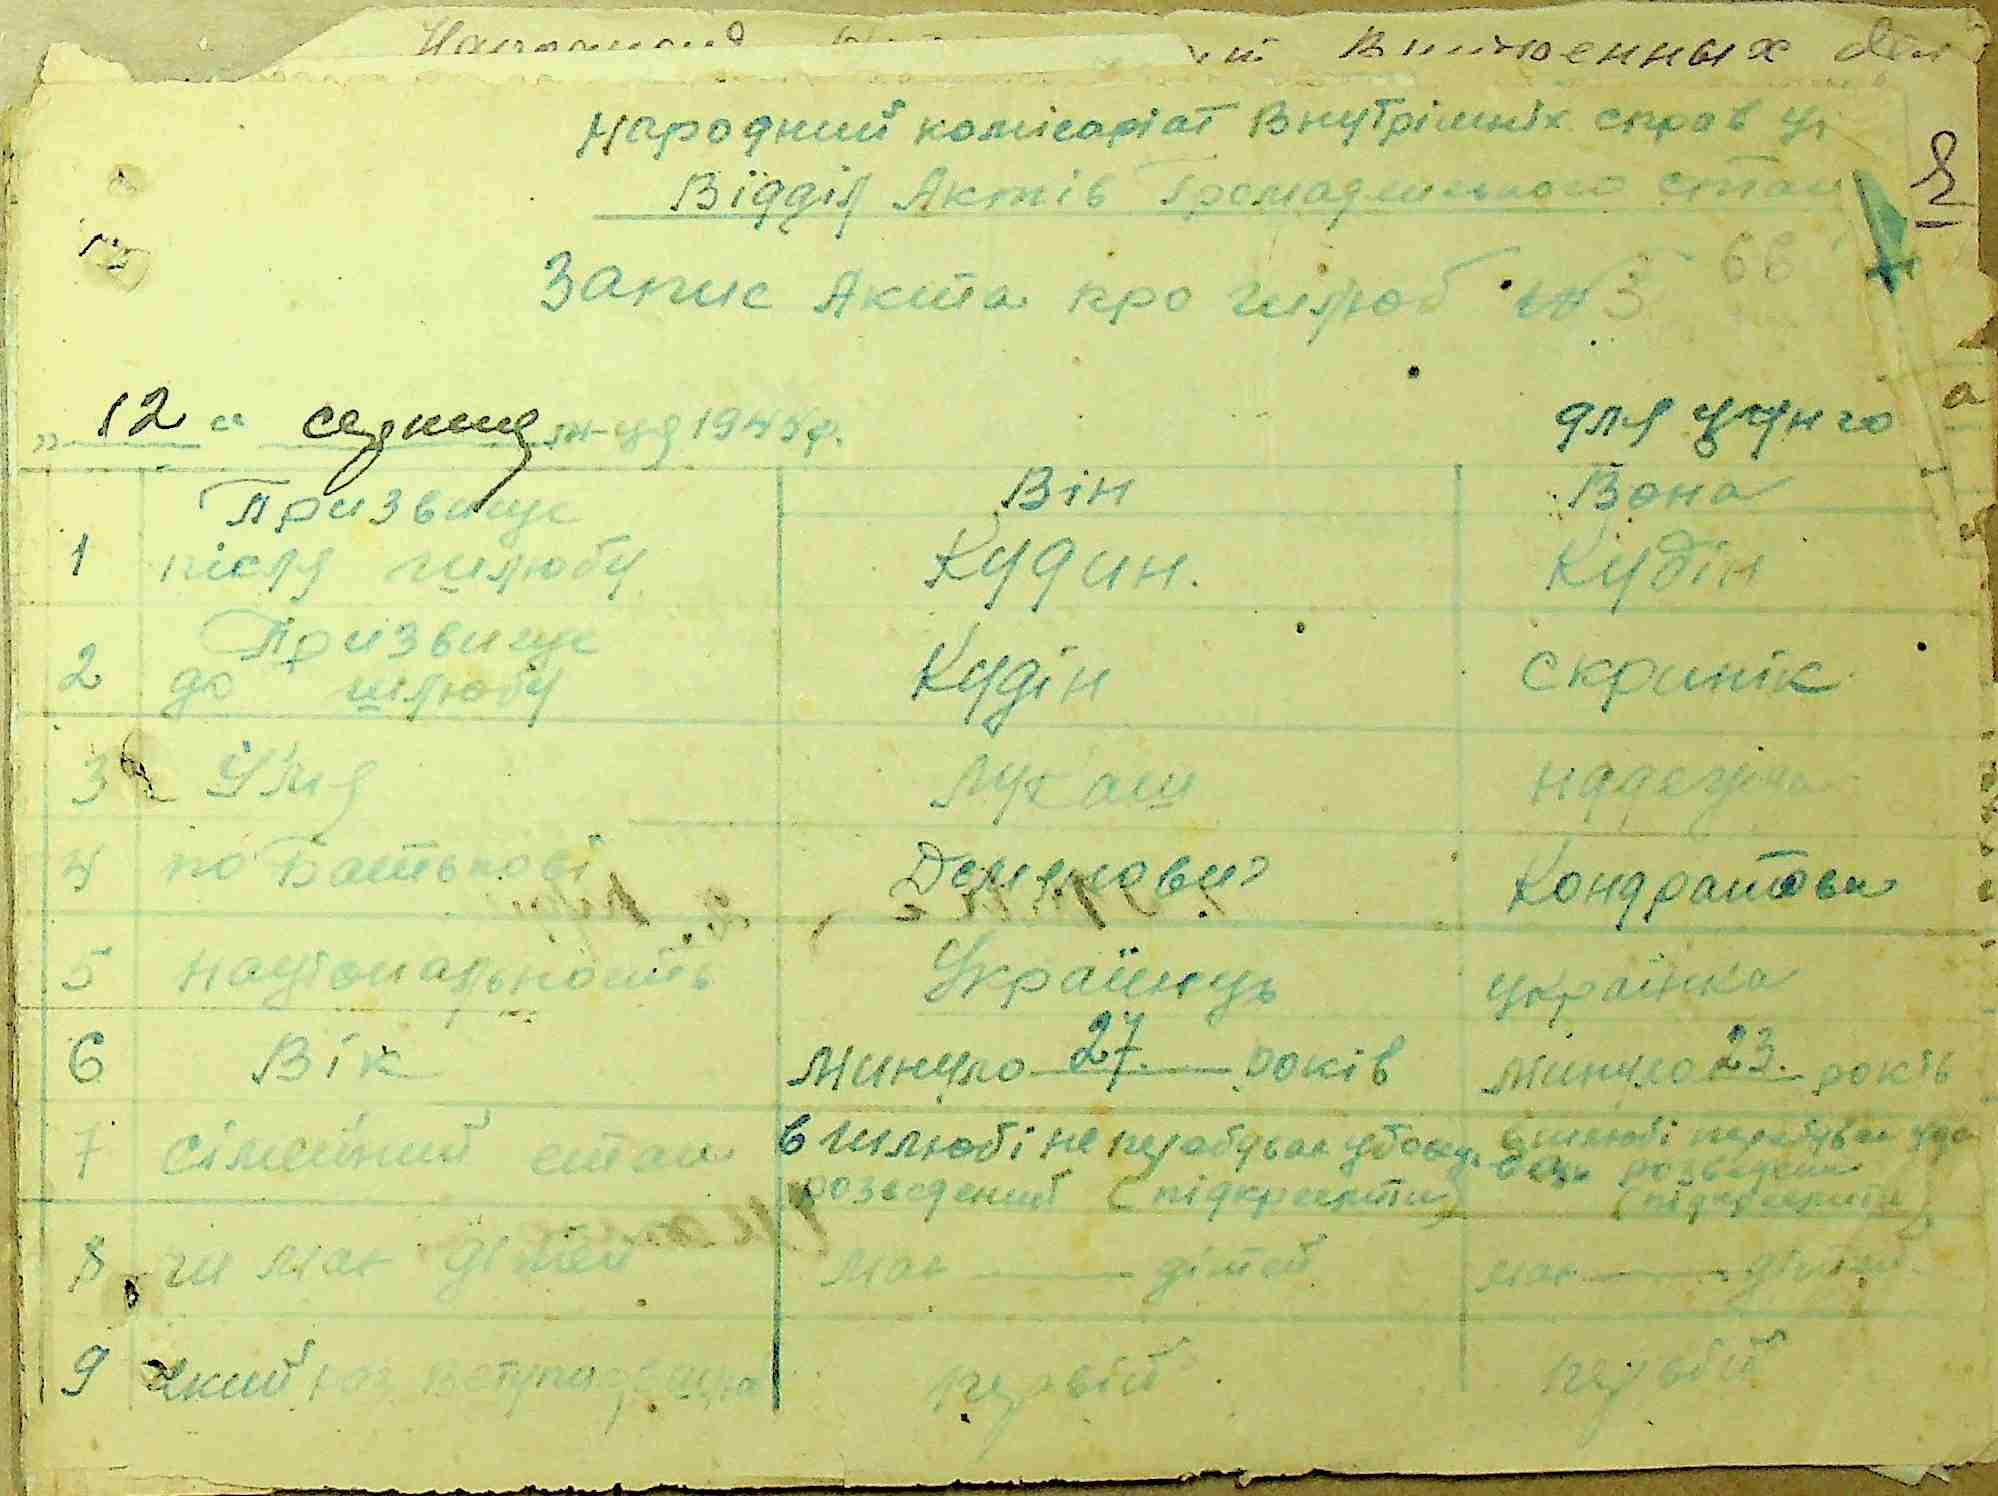 внутренних дел
Народний комісаріат Внутрішніх справ У
Відділ Актів Громадянського стан
Запис Акта про шлюб №3 66
„12" серпня м-ця 1944р. для цього
Він Вона
1 Призвище після шлюбу Кудин. Кудін
2 Призвище до шлюбу Кудін Скриник
3 Ім'я Лукаш Надежда
4 по Батькові Демянович Кондратовн
5 національность Українць українка
6 Вік Минуло 27 років минуло 23. років
7 сімейний стан в шлюбі не перебував удовец, розведений (підкреслити) в шлюбі перебував удо розведена (підкреслити)
8 чи має дітей має — дітей має — дітей
9 який раз вступ первій первій